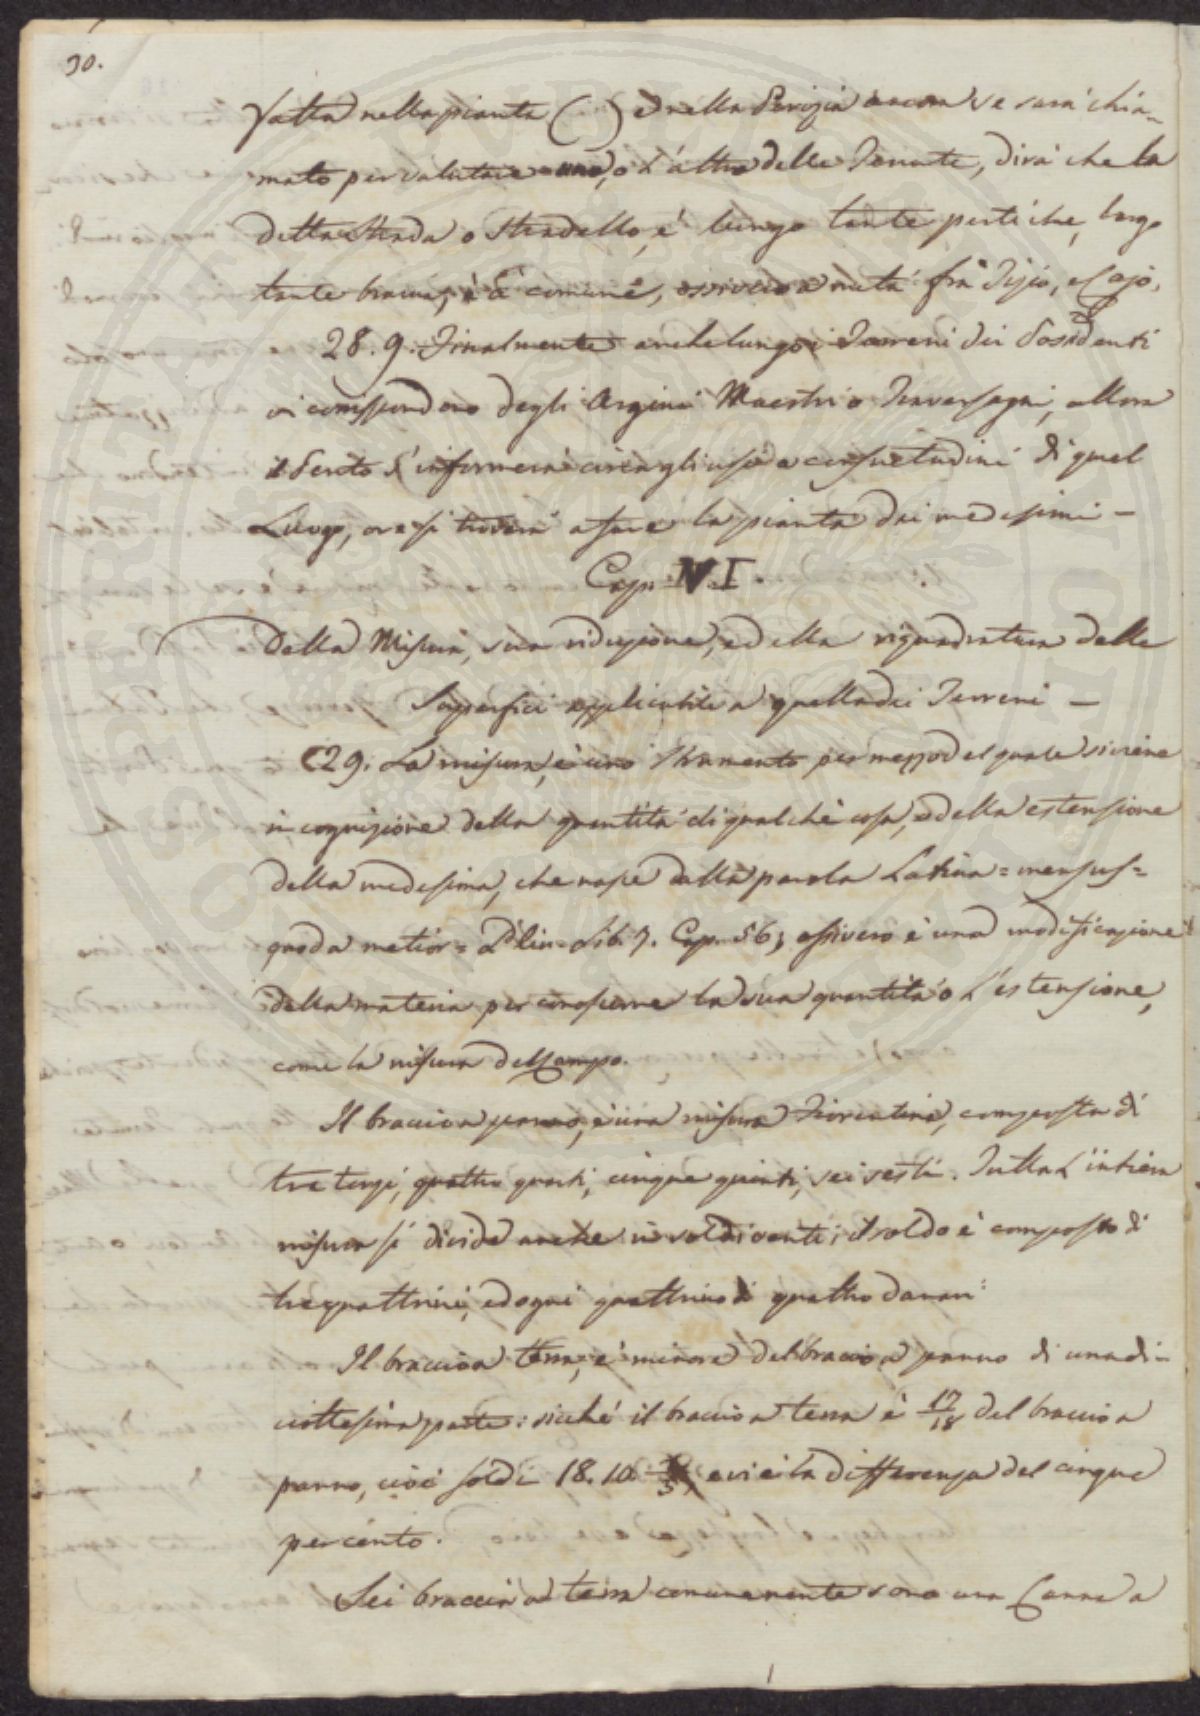 30.
fatta nella pianta ( ) e nella Perizia ancora se sarà chia-
mato per valutare uno, o l'altro delle Tenute, dirà che la
detta strada o stradello, è lungo tante pertiche, largo
tante braccia, è a comune, ossivero a metà fra Tizio, e Cajo.
28. 9. Finalmente anche lungo i Terreni dei Possidenti
vi corrispondono degli Argini Maestri o Traversagni, allora
il Perito s'informerà circa gli usi e consuetudini di quel
Luogo, ove si troverà a fare la pianta dei medesimi -
Cap. VI.
Della Misura, sua riduzione, e della riquadratura delle
Superfici applicabili a quella dei Terreni -
29. La misura, è uno stramento per mezzo del quale si viene
in cognizione della quantità di qualche cosa, e della estensione
della medesima, che nasce dalla parola Latina = mensus =
quod a metior = Plin. Lib. 7. Cap. 56; ossivero è una modificazione
della materia per conoscerne la sua quantità o l'estensione,
come la misura del Campo.
Il braccio a panno, è una misura Fiorentina, composta di
tre terzi, quattro quarti, cinque quinti, sei sesti. Tutta l'intiera
misura si divide anche in soldi venti; il soldo è composto di
tre quattrini, ed ogni quattrino di quattro danari:
Il braccio a terra, è minore del braccio a panno di una di-
ciottesima parte: sicchè il braccio a terra è 17/18 del braccio a
panno, cioè soldi 18. 10 e vi è la differenza del cinque
per cento.
Sei braccia a terra comunemente sono una Canna a